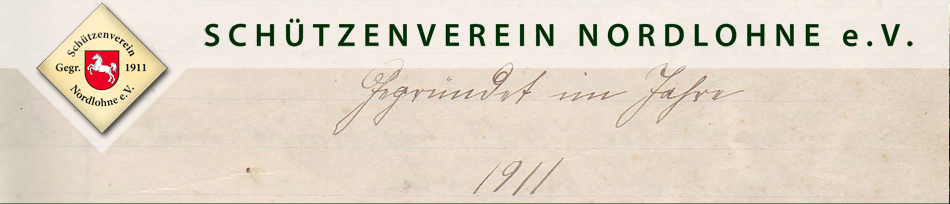 SCHÜTZENVEREIN NORDLOHNE e.V.
Schützenverein
Gegr. 1911
Nordlohne e.V.
Gegründet im Jahre
1911